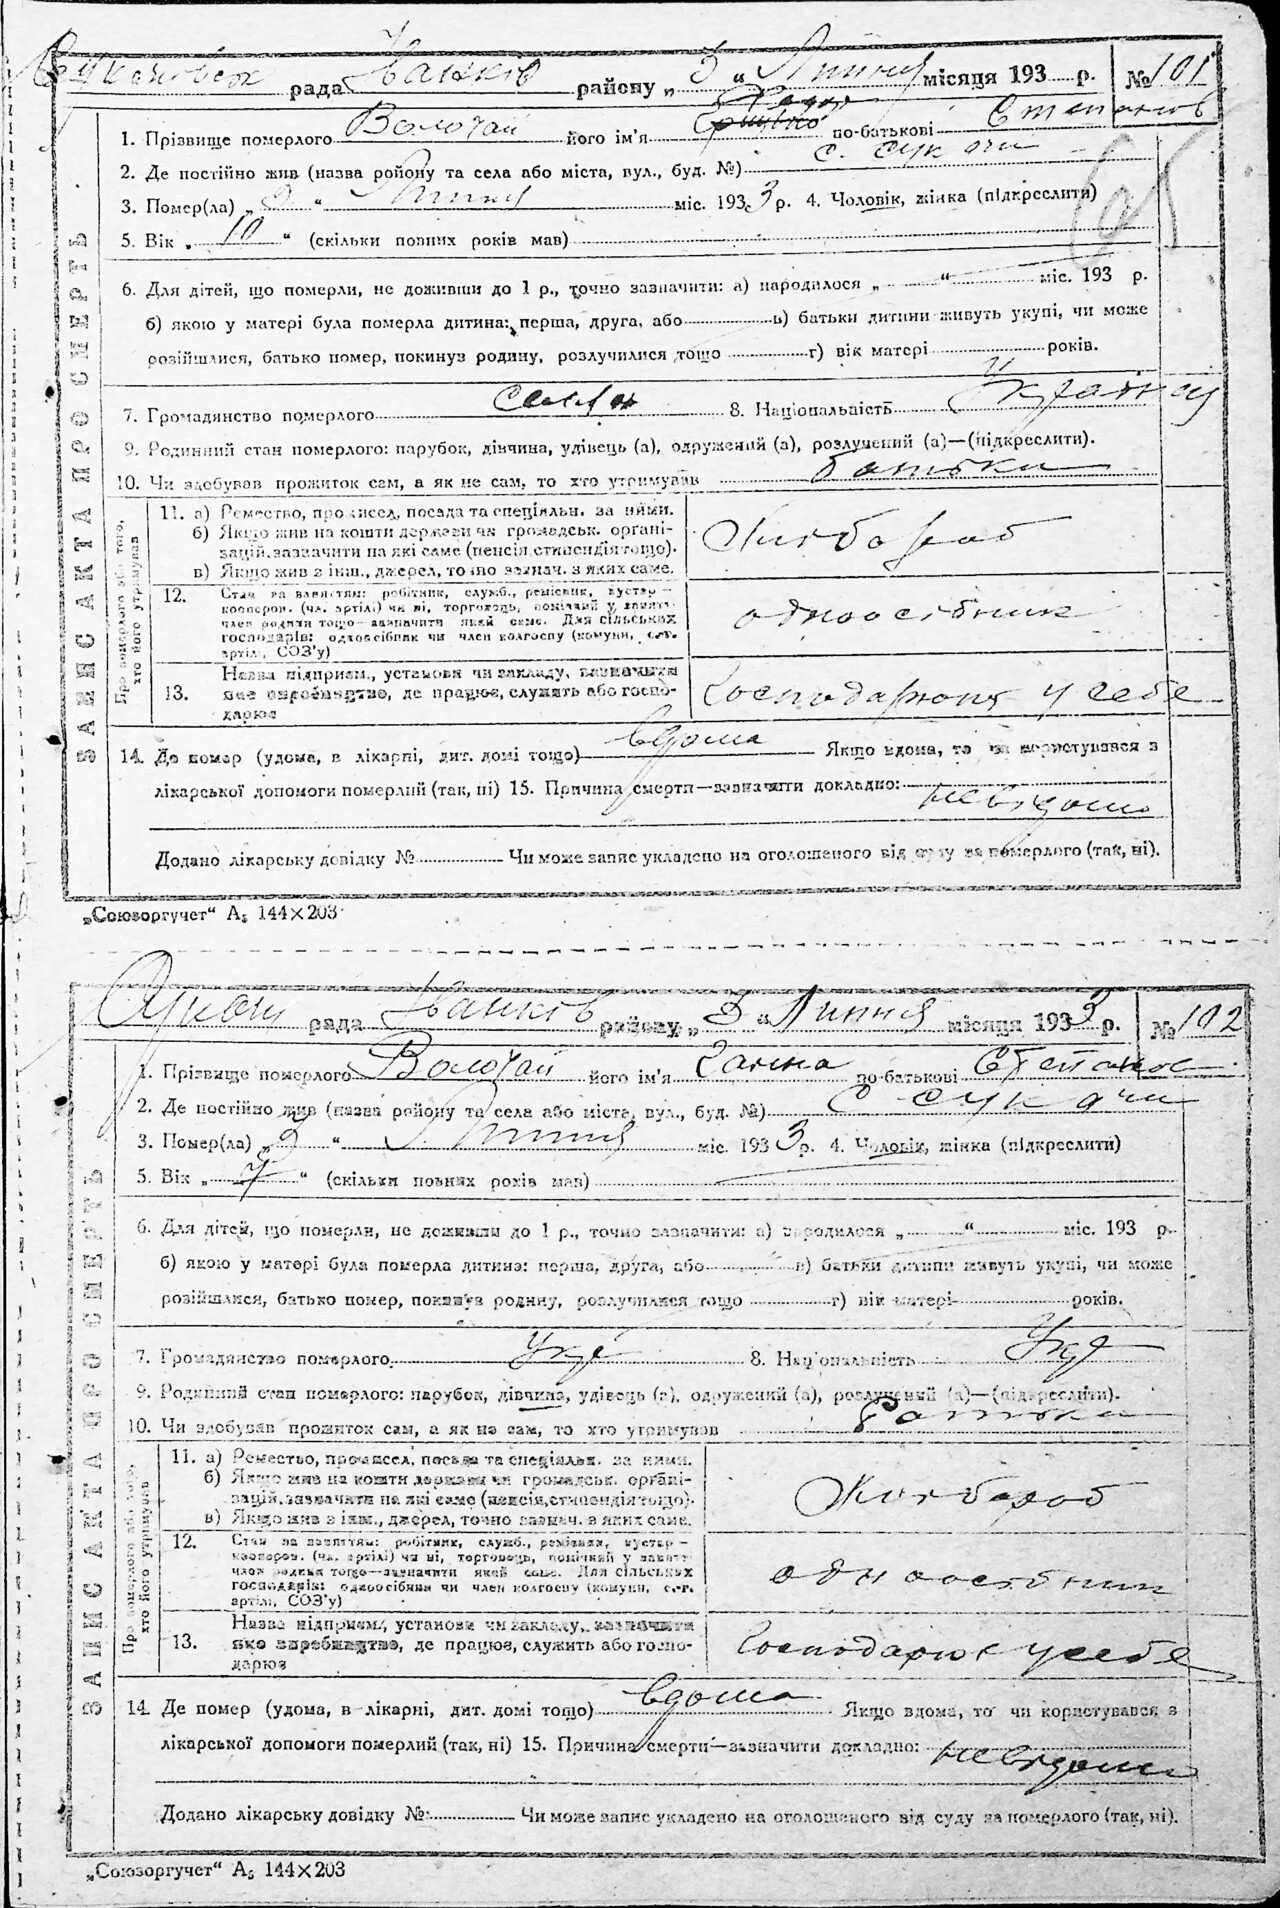 рада Іванків району „ 3 “ Липня місяця 193 р. № 101
ЗАПИС АКТА ПРО СМЕРТЬ
1. Прізвище померлого Волочай його ім'я по-батькові Степанов
2. Де постійно жив (назва району та села або міста, вул., буд. №) с. Сукачи
3. Помер(ла) „ “ Липня міс. 193 3 р. 4. Чоловік, жінка (підкреслити)
5. Вік „ 10 “ (скільки повних років мав)
6. Для дітей, що померли, не доживши до 1 р., точно зазначити: а) народилося „ “ міс. 193 р.
б) якою у матері була померла дитина: перша, друга, або в) батьки дитини живуть укупі, чи може
розійшлися, батько помер, покинув родину, розлучилися тощо г) вік матері років.
7. Громадянство померлого 8. Національність
9. Родинний стан померлого: парубок, дівчина, удівець (а), одружений (а), розлучений (а)—(підкреслити).
10. Чи здобував прожиток сам, а як не сам, то хто утримував батьки
Про померлого або того, хто його утримував
11. а) Ремество, промисел, посада та спеціяльн. за ними.
б) Якщо жив на кошти держави чи громадськ. органі-
зацій, зазначити на які саме (пенсія, стипендія тощо).
в) Якщо жив з інш., джерел, точно зазнач. з яких саме.
Хлібороб
12. Стан за заняттям: робітник, служб., ремісник, кустар—
кооперов. (чл. артілі) чи ні, торговець, помічний у занятт.
член родини тощо—зазначити який саме. Для сільських
господарів: одноосібник чи член колгоспу (комуни, с.-г.
артілі, СОЗ'у)
одноосібник
13. Назва підприєм., установи чи закладу, зазначити
яке виробництво, де працює, служить або госпо-
дарює
у себе
14. Де помер (удома, в лікарні, дит. домі тощо) вдома Якщо вдома, то чи користувався з
лікарської допомоги померлий (так, ні) 15. Причина смерти—зазначити докладно: невідомо
Додано лікарську довідку № Чи може запис укладено на оголошеного від суду за померлого (так, ні).
„Союзоргучет“ А₅ 144×203
рада Іванків району „ 3 “ Липня місяця 193 3 р. № 102
ЗАПИС АКТА ПРО СМЕРТЬ
1. Прізвище померлого Волочай його ім'я Ганна по-батькові Степанов
2. Де постійно жив (назва району та села або міста, вул., буд. №) с Сукачи
3. Помер(ла) „ “ Липня міс. 193 3 р. 4. Чоловік, жінка (підкреслити)
5. Вік „ 7 “ (скільки повних років мав)
6. Для дітей, що померли, не доживши до 1 р., точно зазначити: а) народилося „ “ міс. 193 р.
б) якою у матері була померла дитина: перша, друга, або в) батьки дитини живуть укупі, чи може
розійшлися, батько помер, покинув родину, розлучилися тощо г) вік матері років.
7. Громадянство померлого Укр 8. Національність Укр
9. Родинний стан померлого: парубок, дівчина, удівець (а), одружений (а), розлучений (а)—(підкреслити).
10. Чи здобував прожиток сам, а як не сам, то хто утримував батьки
Про померлого або того, хто його утримував
11. а) Ремество, промисел, посада та спеціяльн. за ними.
б) Якщо жив на кошти держави чи громадськ. органі-
зацій, зазначити на які саме (пенсія, стипендія тощо).
в) Якщо жив з інш., джерел, точно зазнач. з яких саме.
Хлібороб
12. Стан за заняттям: робітник, служб., ремісник, кустар—
кооперов. (чл. артілі) чи ні, торговець, помічний у занятт.
член родини тощо—зазначити який саме. Для сільських
господарів: одноосібник чи член колгоспу (комуни, с.-г.
артілі, СОЗ'у)
одноосібник
13. Назва підприєм., установи чи закладу, зазначити
яке виробництво, де працює, служить або госпо-
дарює
Господарює у себе
14. Де помер (удома, в лікарні, дит. домі тощо) вдома Якщо вдома, то чи користувався з
лікарської допомоги померлий (так, ні) 15. Причина смерти—зазначити докладно: невідомо
Додано лікарську довідку № Чи може запис укладено на оголошеного від суду за померлого (так, ні).
„Союзоргучет“ А₅ 144×203